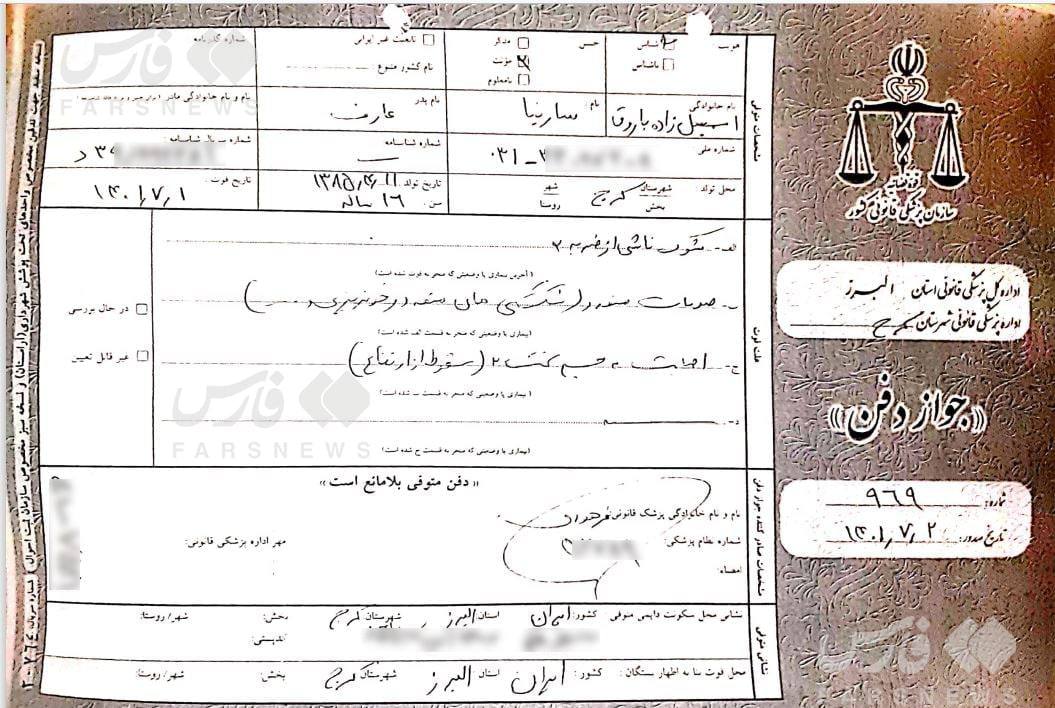 قوه قضائیه
سازمان پزشکی قانونی کشور
اداره کل پزشکی قانونی استان البرز
اداره پزشکی قانونی شهرستان کرج
«جواز دفن»
شماره: ۹۶۹
تاریخ صدور: ۱۴۰۱/۷/۲
مشخصات متوفی
هویت شناس ناشناس
جنس مذکر مونث نامعلوم
تابعیت غیر ایرانی
نام کشور متبوع:
شماره گذرنامه
نام خانوادگی اسمعیل زاده باروق
نام: سارینا
نام پدر عارف
نام و نام خانوادگی مادر
شماره ملی: ۰۳۱-۲
شماره شناسنامه
شماره سریال شناسنامه
محل تولد: شهرستان کرج بخش شهر روستا
تاریخ تولد ۱۳۸۵/۴/۱۱
سن: ۱۶ ساله
تاریخ فوت: ۱۴۰۱/۷/۱
علت فوت
الف-
(آخرین بیماری یا وضعیتی که منجر به فوت شده است)
ب- صدمات متعدد (شکستگی های متعدد و خونریزی)
(بیماری یا وضعیتی که منجر به قسمت الف شده است)
ج- اصابت به جسم سخت (سقوط از ارتفاع)
(بیماری یا وضعیتی که منجر به قسمت ب شده است)
د-
(بیماری یا وضعیتی که منجر به قسمت ج شده است)
در حال بررسی
غیر قابل تعیین
مشخصات صادر کننده جواز دفن
«دفن متوفی بلامانع است»
نام و نام خانوادگی پزشک قانونی:
شماره نظام پزشکی:
امضاء:
مهر اداره پزشکی قانونی:
نشانی متوفی
نشانی محل سکونت دایمی متوفی کشور: ایران استان: البرز شهرستان: کرج بخش: شهر/روستا:
کدپستی:
محل فوت بنا به اظهار بستگان: کشور: ایران استان البرز شهرستان: کرج بخش: شهر/روستا:
فارس
FARSNEWS
فارس
FARSNEWS
فارس
FARSNEWS